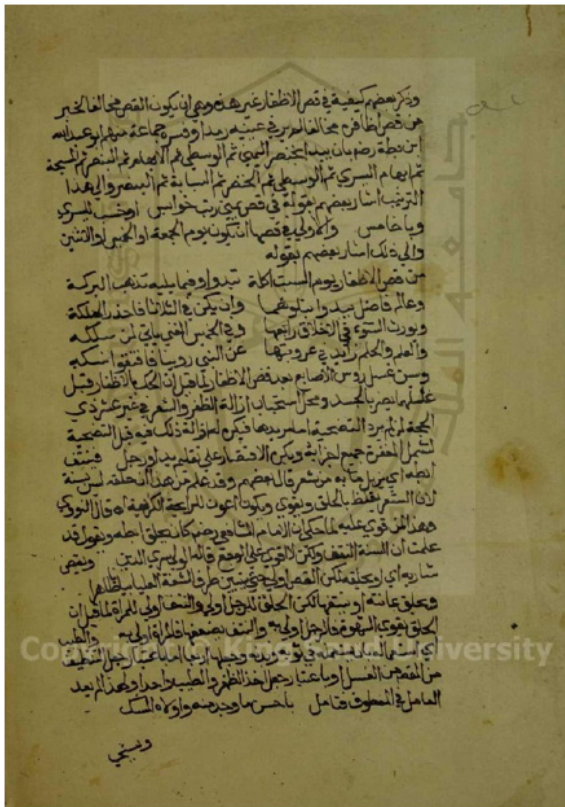 وذكر بعضهم كيفية في قص الاظفار غير هذه وهي ان يكون القص مخالفا لخبر
من قص اظافره مخالفا لم ير في عينيه رمدا وفسره جماعة منهم ابو عبد الله
ابن بطة رضي بان يبدا بخنصر اليمنى ثم الوسطى ثم الابهام ثم البنصر ثم المسبحة
ثم ابهام اليسرى ثم الوسطى ثم الخنصر ثم السبابة ثم البنصر والى هذا
الترتيب اشار بعضهم بقوله في قص يمنى رتبت خوابس اوخسب لليسرى
وبا خامس والاولى في قصها ان يكون يوم الجمعة او الخميس او الاثنين
والى ذلك اشار بعضهم بقوله
من قص الاظفار يوم السبت اكلة تبدو وفيما يليه تذهب البركة
وعالم فاضل يبدو بتلوهما وان يكن في الثلاثا فاحذر الهلكة
ويورث السوء في الاخلاق رابعها وفي الخميس الغنى ياتي لمن سلكه
والعلم والحلم زيد في عروبتها عن النبي روينا فاقتفوا نسكه
وسن غسل روس الاصابع بعد قص الاظفار لما قيل ان الحك بالاظفار قبل
غسلها يضر بالجسد ومحل استحباب ازالة الظفر والشعر في غير عشر ذي
الحجة لمن لم يرد التضحية اما مريدها فيكره له ازالة ذلك فيه قبل التضحية
لتشمل المغفرة جميع اجزائه ويكره الاقتصار على تقليم يد او رجل فينتف
ابطه اي يزيل ما به من شعر قال بعضهم وقد علم من هذا ان حلقه ليس بسنة
لان الشعر يغلظ بالحلق ويقوى ويكون اعون للرائحة الكريهة اه قال النووي
وهذا لمن قوي عليه لما حكي ان الامام الشافعي رضي كان يحلق ابطه ويقول قد
علمت ان السنة النتف ولكن لا اقوى على الوجع قاله الولي سري الدين ويقص
شاربه اي او يحلقه لكن القص اولى حتى يتبين طرف الشفة العليا
ويحلق عانته او ينتفها لكن الحلق للرجل اولى والنتف اولى للمراة لما قيل ان
الحلق يقوي الشهوة فالرجل اولى به والنتف يضعفها فالمراة اولى به والطيب
اي استعمال الطيب في ثوبه وبدنه
من القص الغسل او باعتبار جعل اخذ الظفر والطيب واحدا ولهذا لم يعد
العامل في المعطوف فتامل باحسن ما وجد منه واولاه المسك
ويستحي
Copyright © King Saud University